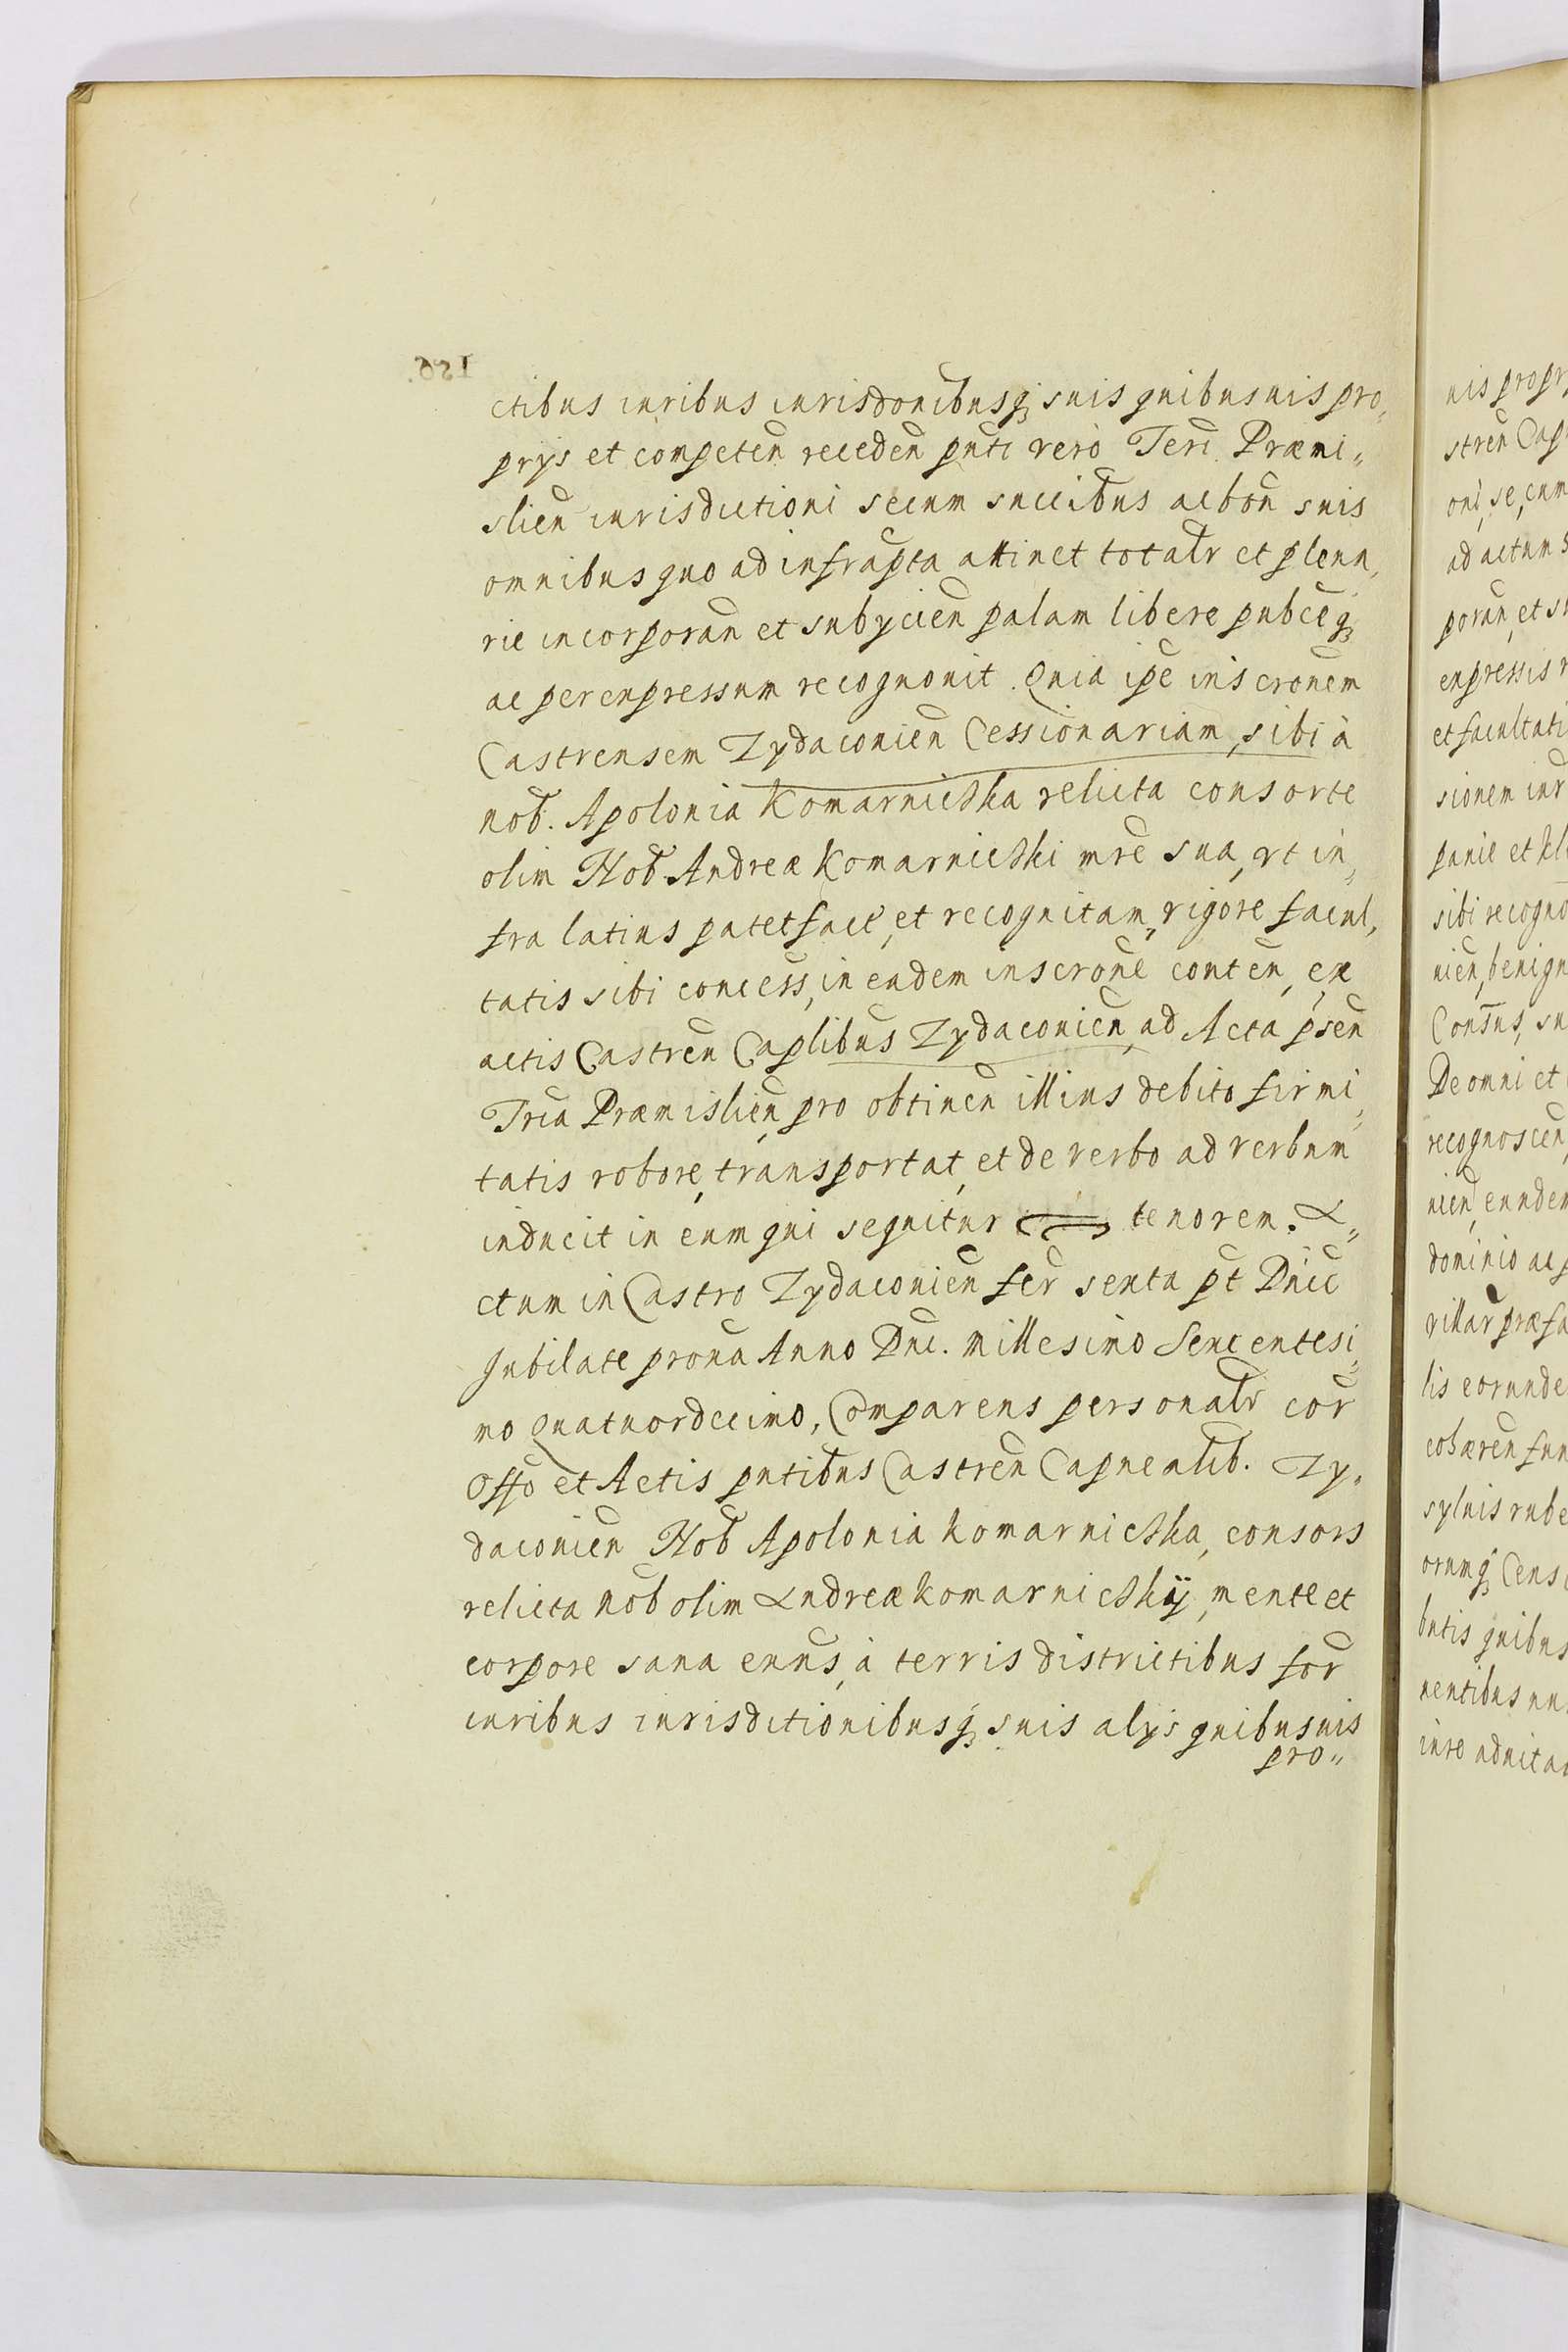 ctibus iuribus iurisdonibusq suis quibusuis pro,
prys et competen receden pnti vero Teri Præmi„
slien iurisdictioni secum succibus ac bon suis
omnibus quo ad infrapta attinet totalr et plena,
rie incorporan et subycien palam libere pubceq
ac per expressum recognouit. Quia ipe inscronem
Castrensem Zydaconien Cessionariam, sibi à
nob. Apolonia Komarnicska relicta consorte
olim Nob. Andreæ Komarnicski mre sua, vt in„
fra latius patet fact, et recognitam, vigore facul,
tatis sibi concess, in eadem inscrone conten, ex
actis Castren Caplibus Zydaconien, ad Acta psen
Tria Præmislien, pro obtinen illius debito firmi„
tatis robore, transportat, et de verbo ad verbum
inducit in eum qui sequitur tenorem. A„
ctum in Castro Zydaconien fer sexta pt Dnic
Jubilate proxa Anno Dni. Millesimo Sexcentesi„
mo Quatuordecimo, Comparens personalr cor
Offo et Actis pntibus Castren Capnealib. Zy„
daconien Nob Apolonia Komarnicska, consors
relicta Nob olim Andreæ Komarnicskÿ, mente et
corpore sana exns, à terris districtibus for
iuribus iurisdctionibusq suis alys quibusuis
pro„
uis propr
stren Cap
oni, se, cum
ad actum s
poran, et su
expressis
et facultati
sionem iur
panie et
sibi recogno
nien, benign
Consns, su
De omni et
recognoscen,
nien, eundem
dominio ac p
villar præfa
lis eorunde
cohæren fun
syluis rube
orumq Cens
butis quibus
nentibus nu
iure aduita